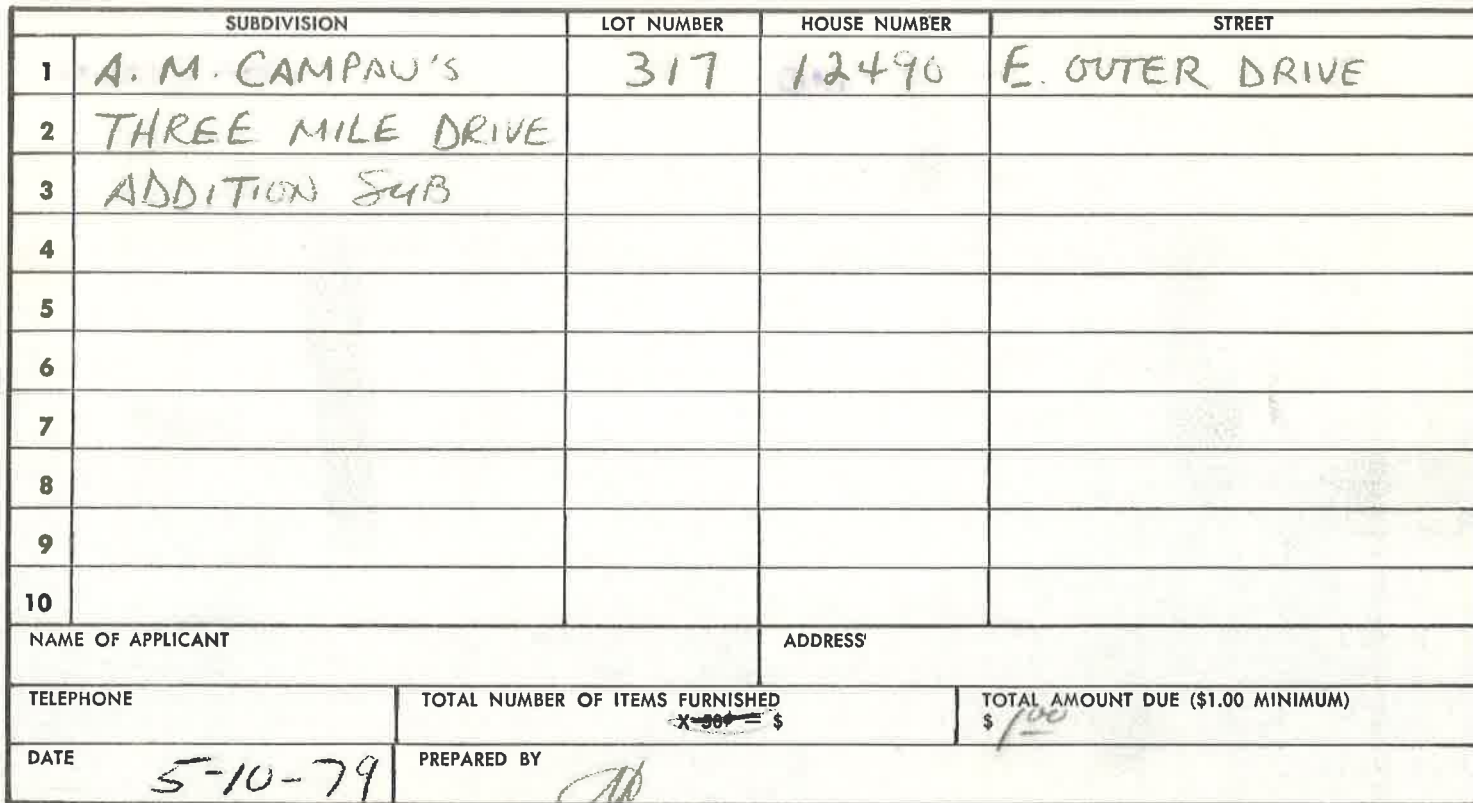 SUBDIVISION LOT NUMBER HOUSE NUMBER STREET
1 A. M. CAMPAU'S 317 12490 E. OUTER DRIVE
2 THREE MILE DRIVE
3 ADDITION SUB
4
5
6
7
8
9
10
NAME OF APPLICANT ADDRESS
TELEPHONE TOTAL NUMBER OF ITEMS FURNISHED TOTAL AMOUNT DUE ($1.00 MINIMUM)
X 50¢ = $ $ 1.00
DATE 5-10-79 PREPARED BY